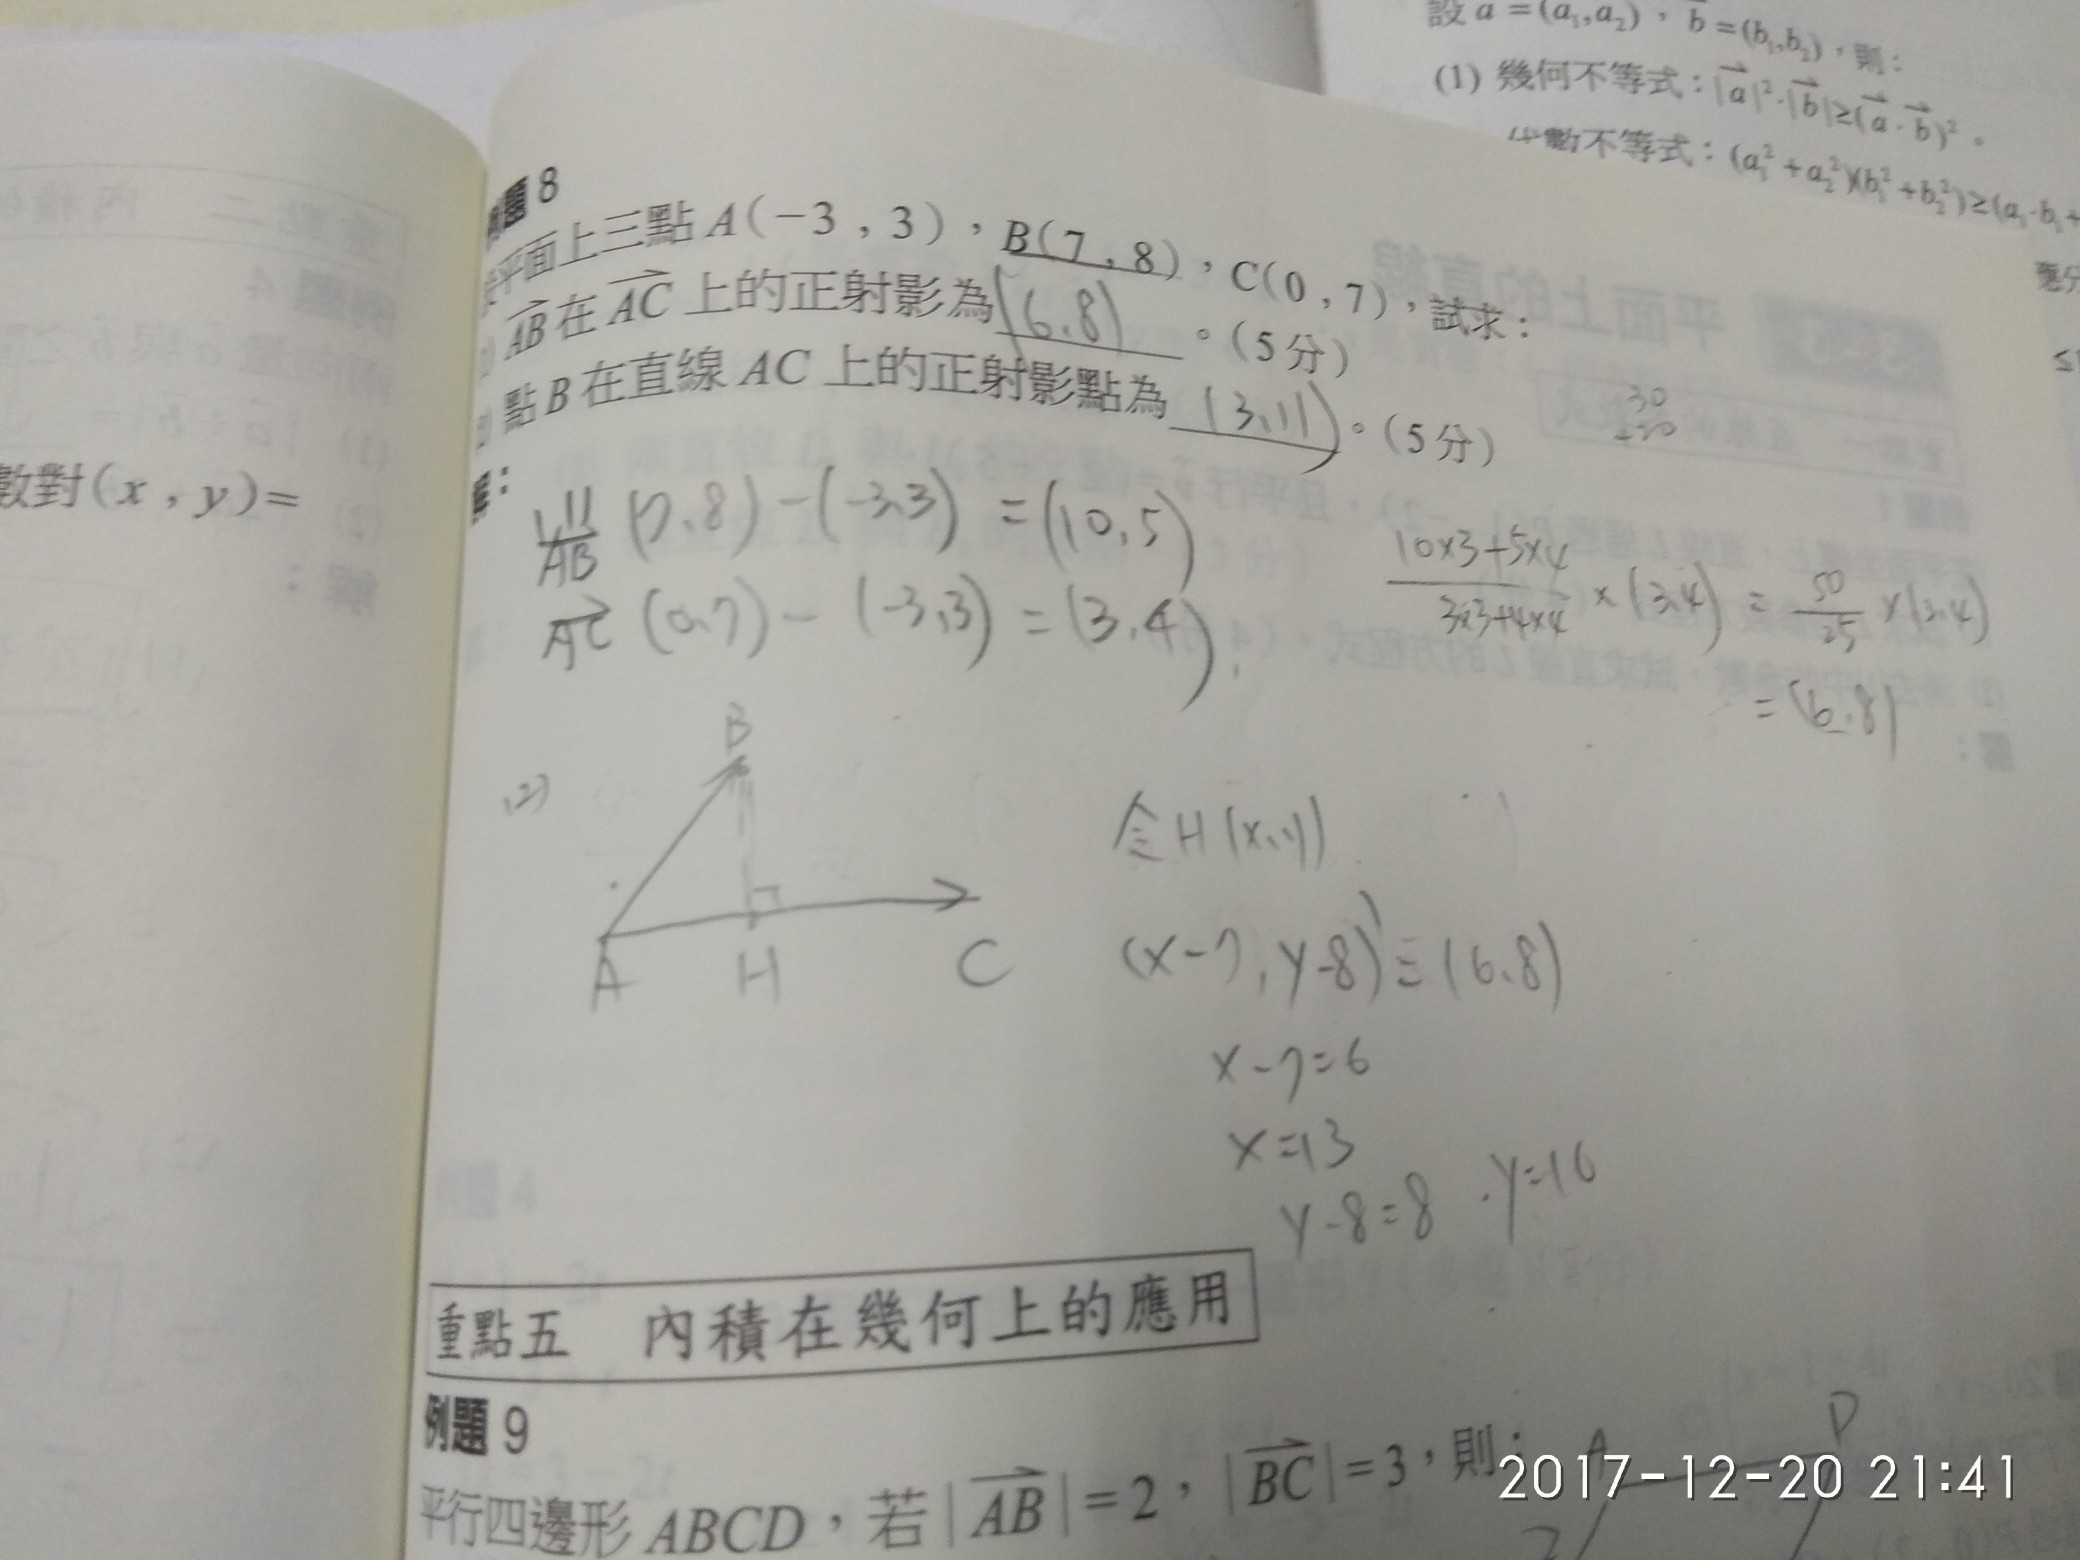 設 a = (a₁,a₂) , b = (b₁,b₂) , 則 :
(1) 幾何不等式 : |a|² · |b| ≥ (a · b)² 。
數不等式 : (a₁² + a₂²)(b₁² + b₂²) ≥ (a₁ · b₁ +
數對 (x , y) =
例題 8
平面上三點 A(-3 , 3) , B(7 , 8) , C(0 , 7) , 試求 :
AB 在 AC 上的正射影為 (6,8) 。(5 分)
點 B 在直線 AC 上的正射影點為 (3,11) 。(5 分)
30
解 :
(1) AB (7,8) - (-3,3) = (10,5)
AC (0,7) - (-3,3) = (3,4)
10×3+5×4 / 3×3+4×4 × (3,4) = 50/25 × (3,4)
= (6,8)
(2)
B
A H C
令 H (x,y)
(x-7, y-8) = (6,8)
x-7=6
x=13
y-8=8 . y=16
重點五 內積在幾何上的應用
例題 9
平行四邊形 ABCD , 若 | AB | = 2 , | BC | = 3 , 則 :
A D
2
2017-12-20 21:41